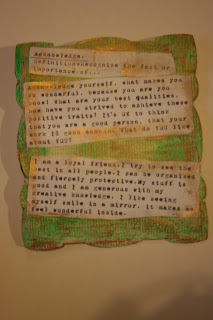 Acknowledge.
Definition=Recognise the fact or
importance of...
Acknowledge yourself, what makes you
so wonderful, because you are you
know! What are your best qualities.
How have you strived to achieve these
positive traits? It's OK to think
that you are a good person, that your
work IS good enough. What do YOU like
about YOU?
I am a loyal friend. I try to see the
best in all people. I can be organised
and fiercely protective. My stuff is
good and I am generous with my
creative knowledge. I like seeing
myself smile in a mirror. It makes me
feel wonderful inside.